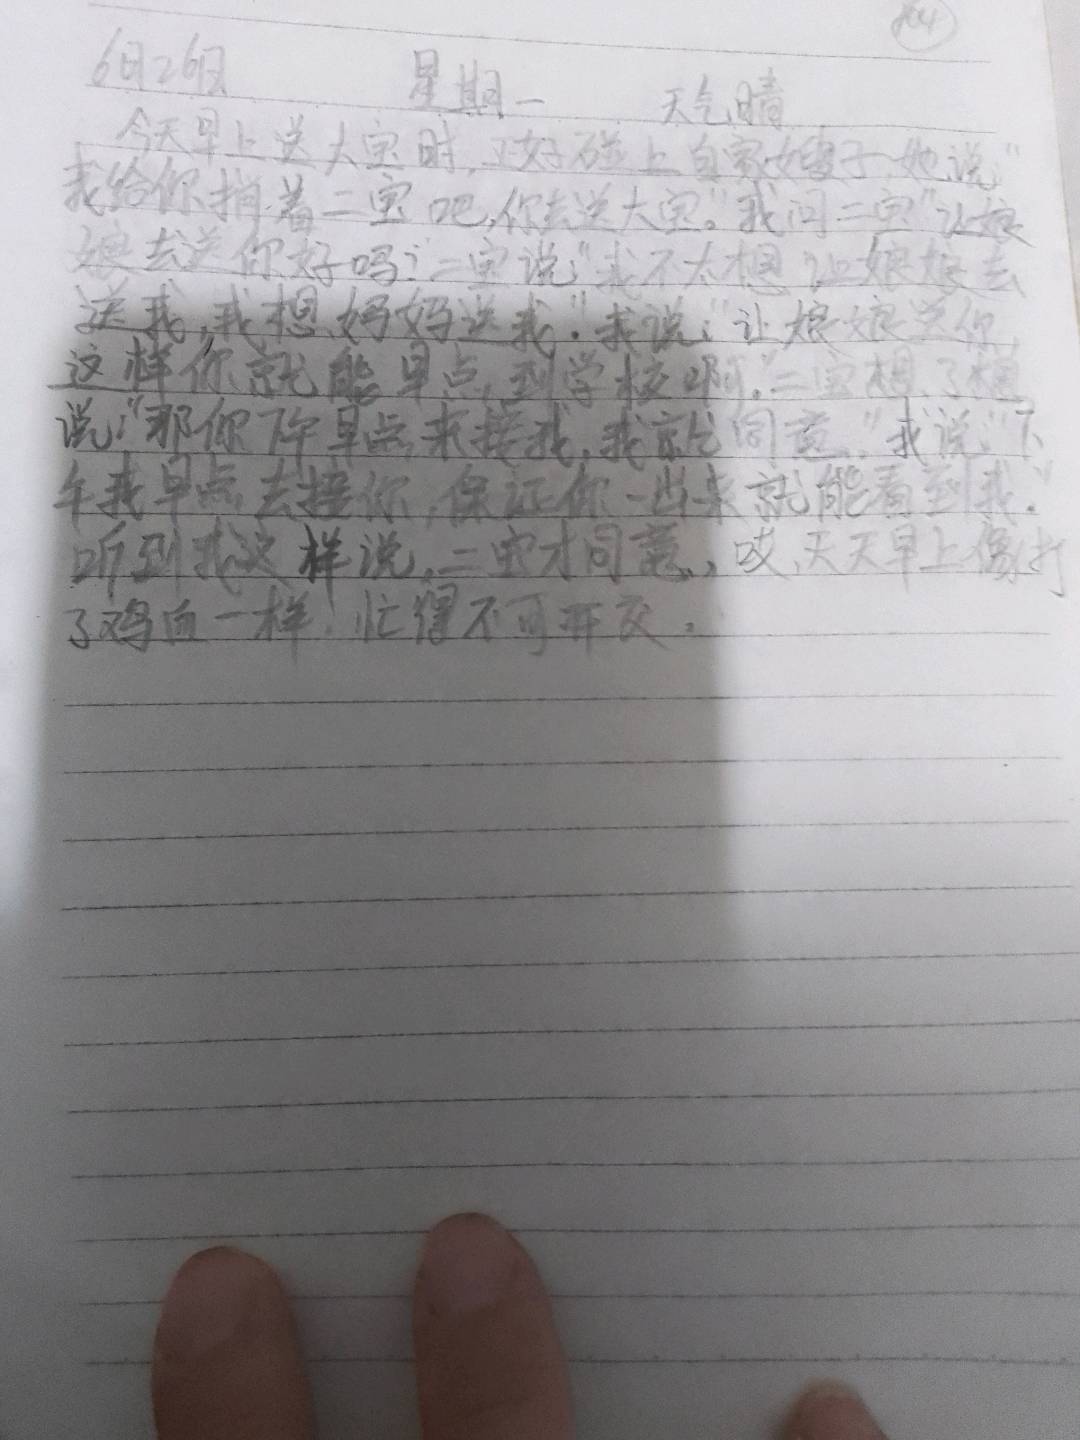 6月26日 星期一 天气晴
今天早上送大宝时,正好碰上自家嫂子,她说:"
我给你捎着二宝吧,你去送大宝。"我问二宝"让娘
娘去送你好吗?"二宝说:"我不太想让娘娘去
送我,我想妈妈送我."我说:"让娘娘送你,
这样你就能早点到学校啊."二宝想了想
说:"那你下午早点来接我,我就同意."我说:"下
午我早点去接你,保证你一出来就能看到我."
听到我这样说,二宝才同意。哎,天天早上像打
了鸡血一样,忙得不可开交。